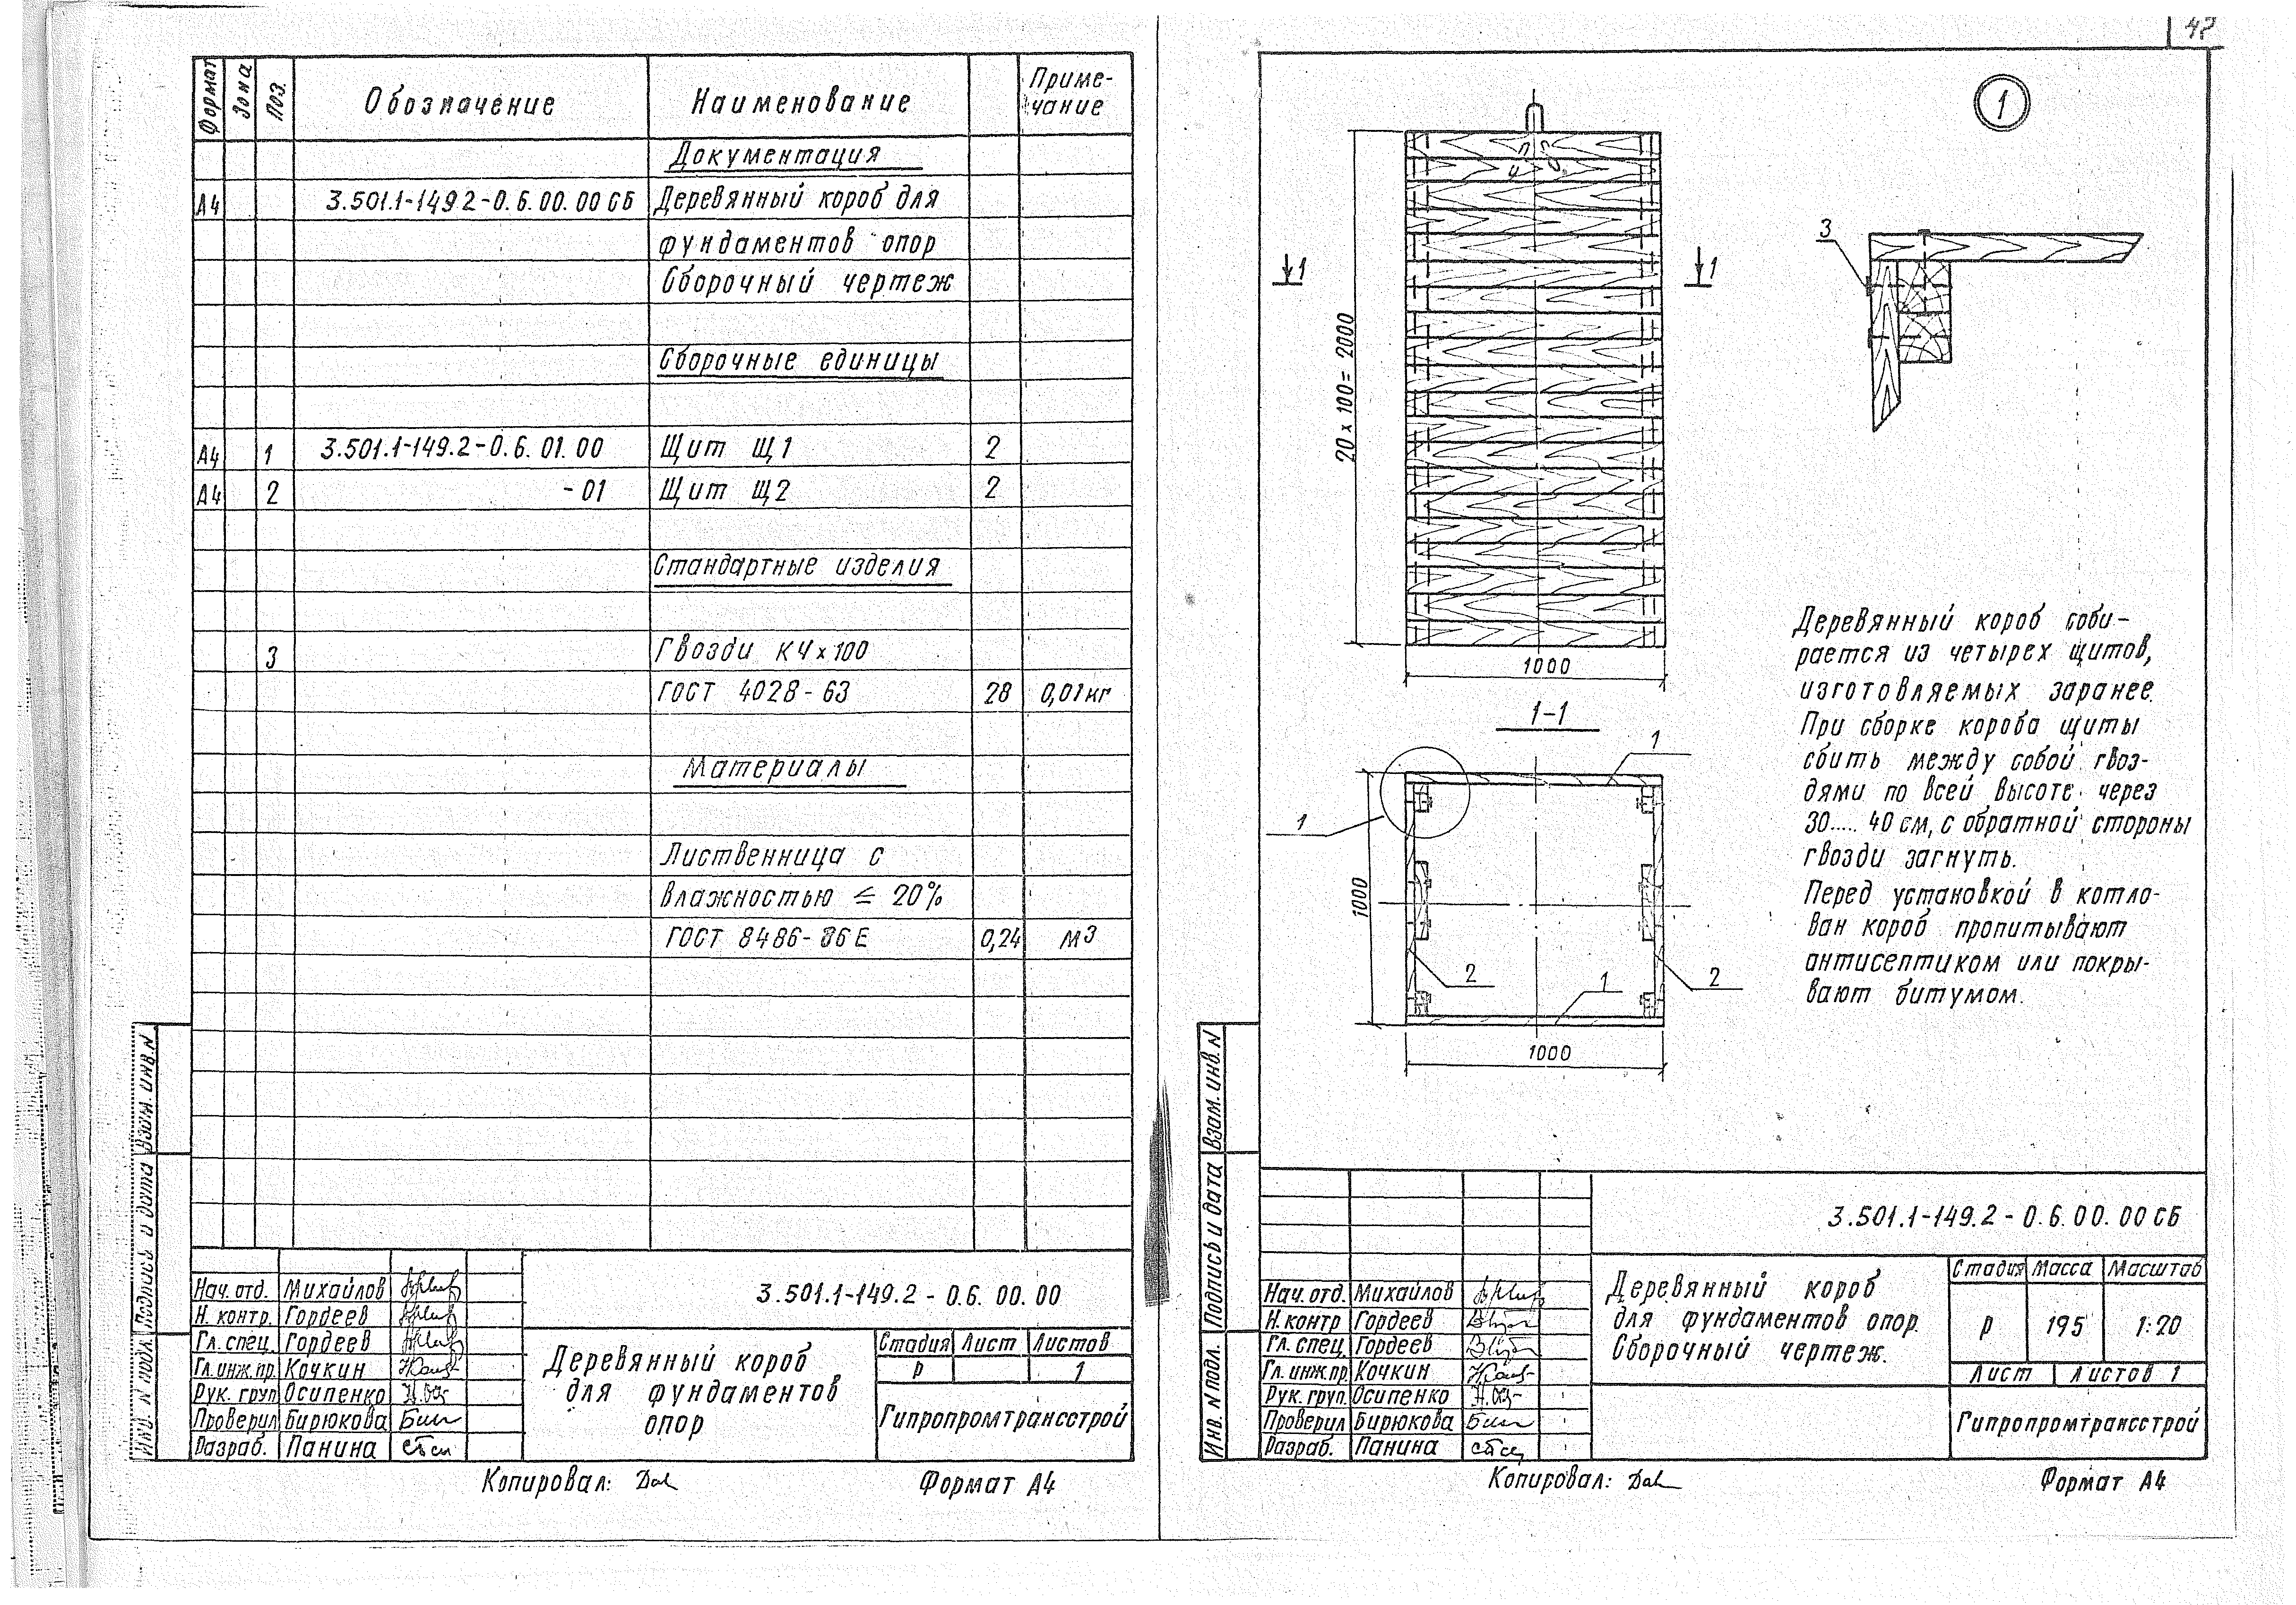 Формат Зона Поз. Обозначение Наименование Приме-
чание
Документация
А4 3.501.1-149.2-0.6.00.00 СБ Деревянный короб для
фундаментов опор
Сборочный чертеж
Сборочные единицы
А4 1 3.501.1-149.2-0.6.01.00 Щит Щ1 2
А4 2 -01 Щит Щ2 2
Стандартные изделия
3 Гвозди К4х100
ГОСТ 4028-63 28 0,01кг
Материалы
Лиственница с
влажностью ≤ 20%
ГОСТ 8486-86 Е 0,24 м3
Взам. инв. N
Подпись и дата
Инв. N подл.
3.501.1-149.2-0.6.00.00
Нач. отд. Михайлов
Н. контр. Гордеев
Гл. спец. Гордеев
Гл. инж. пр. Кочкин
Рук. груп. Осипенко
Проверил Бирюкова
Разраб. Панина
Деревянный короб
для фундаментов
опор
Стадия Лист Листов
Р 1
Гипропромтрансстрой
Копировал:
Формат А4
1
3
1 1
20 х 100 = 2000
1000
1-1
1
1
1000
2
1
2
1000
Деревянный короб соби-
рается из четырех щитов,
изготовляемых заранее.
При сборке короба щиты
сбить между собой гвоз-
дями по всей высоте через
30..... 40 см, с обратной стороны
гвозди загнуть.
Перед установкой в котло-
ван короб пропитывают
антисептиком или покры-
вают битумом.
Взам. инв. N
Подпись и дата
Инв. N подл.
3.501.1-149.2-0.6.00.00 СБ
Нач. отд. Михайлов
Н. контр Гордеев
Гл. спец. Гордеев
Гл. инж. пр. Кочкин
Рук. груп. Осипенко
Проверил Бирюкова
Разраб. Панина
Деревянный короб
для фундаментов опор.
Сборочный чертеж.
Стадия Масса Масштаб
Р 195 1:20
Лист Листов 1
Гипропромтрансстрой
Копировал:
Формат А4